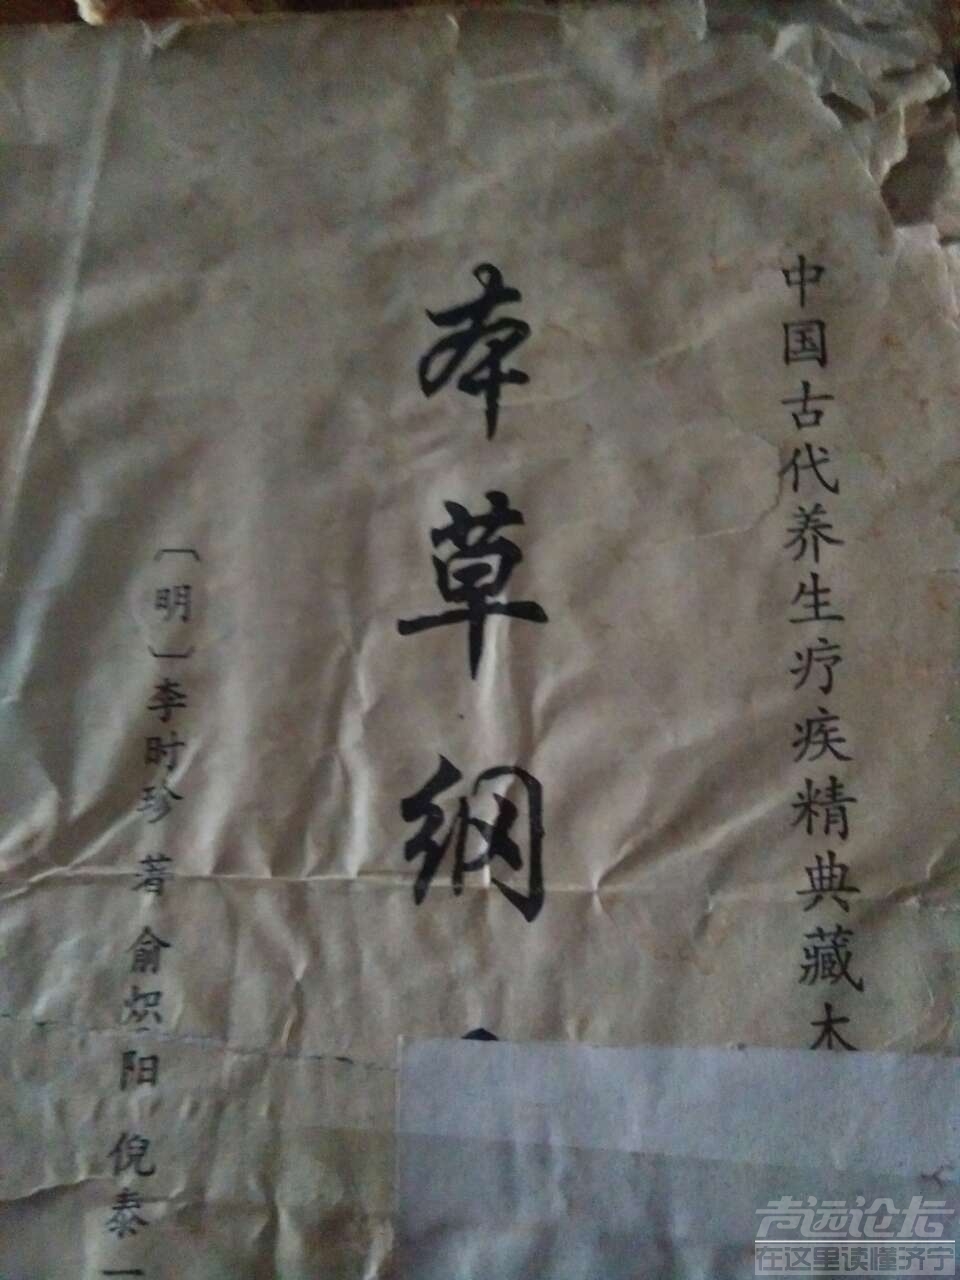 中国古代养生疗疾精典藏本
本草纲
〔明〕李时珍 著 俞炽阳 倪泰一
声远论坛
在这里读懂济宁